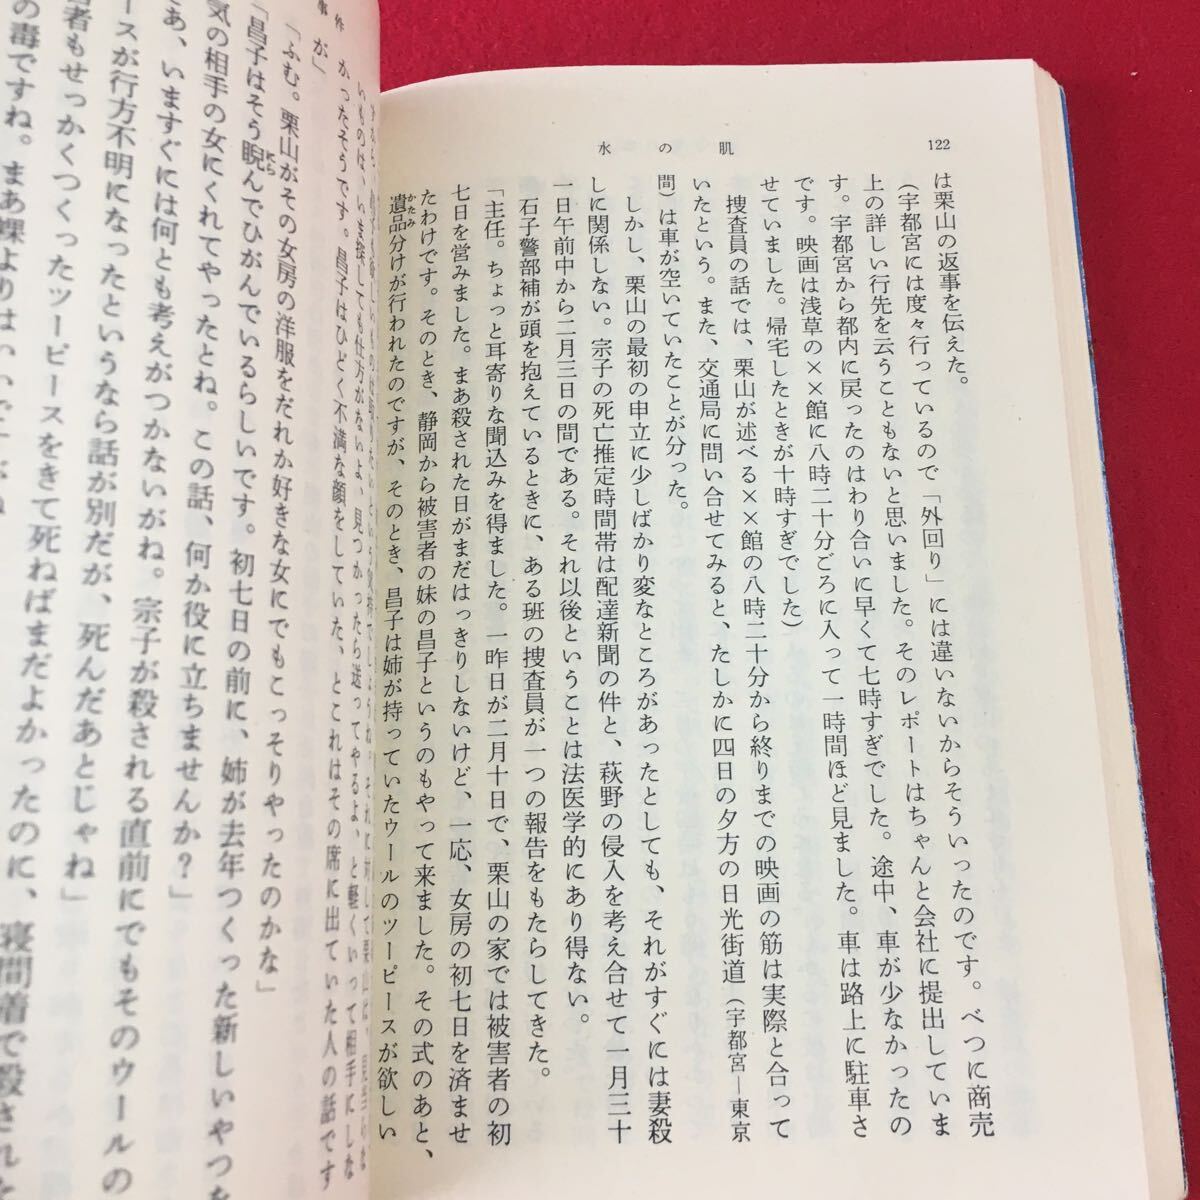 122
水の肌
は栗山の返事を伝えた。
(宇都宮には度々行っているので「外回り」には違いないからそういったのです。べつに商売
上の詳しい行先を云うこともないと思いました。そのレポートはちゃんと会社に提出していま
す。宇都宮から都内に戻ったのはわり合いに早くて七時すぎでした。途中、車が少なかったの
です。映画は浅草の××館に八時二十分ごろに入って一時間ほど見ました。車は路上に駐車さ
せていました。帰宅したときが十時すぎでした)
捜査員の話では、栗山が述べる××館の八時二十分から終りまでの映画の筋は実際と合って
いたという。また、交通局に問い合せてみると、たしかに四日の夕方の日光街道(宇都宮—東京
間)は車が空いていたことが分った。
しかし、栗山の最初の申立に少しばかり変なところがあったとしても、それがすぐには妻殺
しに関係しない。宗子の死亡推定時間帯は配達新聞の件と、萩野の侵入を考え合せて一月三十
一日午前中から二月三日の間である。それ以後ということは法医学的にあり得ない。
石子警部補が頭を抱えているときに、ある班の捜査員が一つの報告をもたらしてきた。
「主任。ちょっと耳寄りな聞込みを得ました。一昨日が二月十日で、栗山の家では被害者の初
七日を営みました。まあ殺された日がまだはっきりしないけど、一応、女房の初七日を済ませ
たわけです。そのとき、静岡から被害者の妹の昌子というのもやって来ました。その式のあと、
遺品分けが行われたのですが、そのとき、昌子は姉が持っていたウールのツーピースが欲しい
かたみ
事件
いものは、い
かったそうです。昌子はひどく不満な顔をしていた、とこれはその席に出ていた人の話です
が」
「ふむ。栗山がその女房の洋服をだれか好きな女にでもこっそりやったのかな」
「昌子はそう睨んでひがんでいるらしいです。初七日の前に、姉が去年つくった新しいやつを
にら
気の相手の女にくれてやったとね。この話、何か役に立ちませんか?」
あ、いますぐには何とも考えがつかないがね。宗子が殺される直前にでもそのウールの
スが行方不明になったというなら話が別だが、死んだあとじゃね」
者もせっかくつくったツーピースをきて死ねばまだよかったのに、寝間着で殺された
の毒ですね。まあ裸よりは